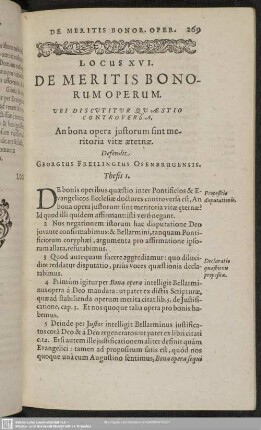 DE MERITIS BONOR. OPER. 269
LOCUS XVI.
DE MERITIS BONO-
RUM OPERUM.
UBI DISCUTITUR QUÆSTIO
CONTROVERSA,
An bona opera justorum sint me-
ritoria vitæ æternæ.
Defendit
GEORGIUS FREILINGIUS OSENBRUGENSIS.
Thesis 1.
DE bonis operibus quæstio inter Pontificios & E-
vangelicos Ecclesiæ doctores controversa est, An
bona opera justorum sint meritoria vitæ æternæ?
Id quod illi quidem affirmant: isti verò negant.
Propositio
disputationis.
2 Nos negationem istorum hac disputatione Deo
juvante confirmabimus: & Bellarmini, tanquam Ponti-
ficiorum coryphæi, argumenta pro affirmatione ipso-
rum allata, refutabimus.
3 Quod antequam facere aggrediamur: quo diluci-
dior reddatur disputatio, prius voces quæstionis decla-
rabimus.
Declaratio
quæstionis
propositæ.
4 Primùm igitur per Bona opera intelligit Bellarmi-
nus opera à Deo mandata: ut patet ex dictis Scripturæ,
quæ ad stabilienda operum merita citat lib. 5. de justifi-
catione, cap. 3. Et nos quoque talia opera pro bonis ha-
bemus.
5 Deinde per Justos intelligit Bellarminus justifica-
tos corà Deo & à Deo regeneratos: ut patet ex libri citati
c. 12. Etsi autem ille justificationem aliter definit quàm
Evangelici: tamen ad propositum satis est, quòd nos
quoque unà cum Augustino sentimus, Bona opera sequi